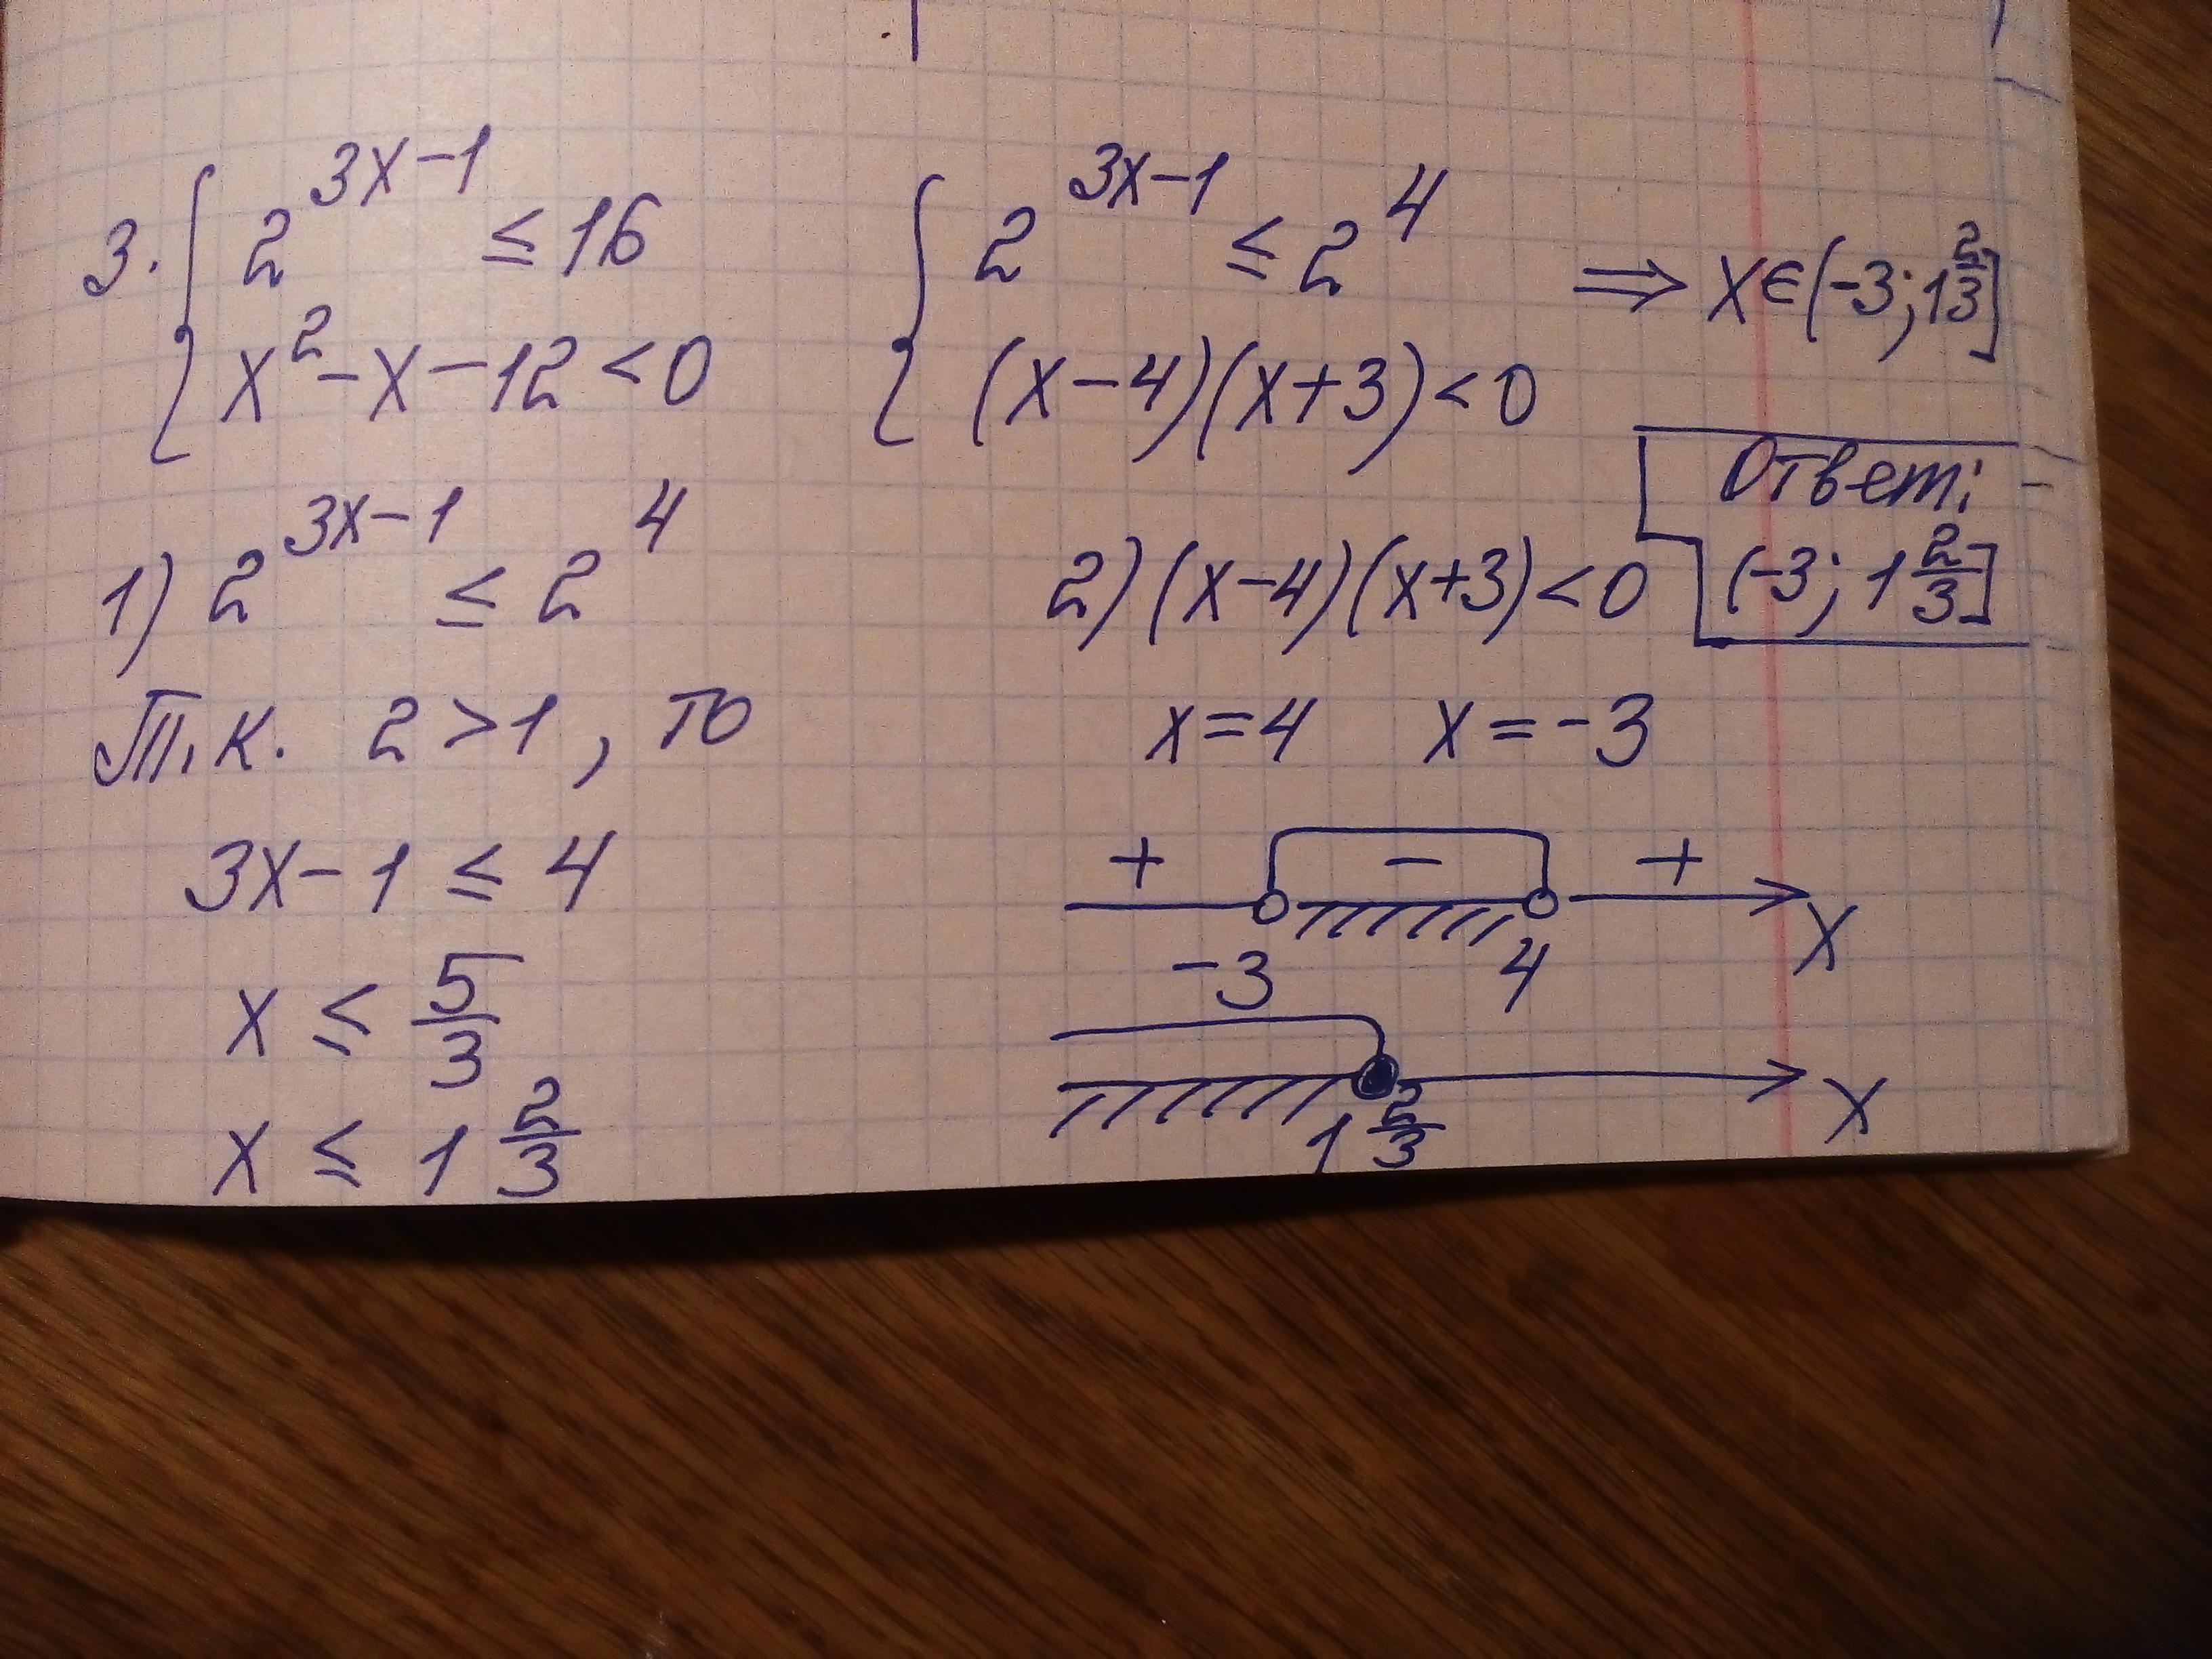 3. { 2^{3x-1} ≤ 16
x² - x - 12 < 0
{ 2^{3x-1} ≤ 2^4
(x-4)(x+3) < 0
⇒ x ∈ (-3; 1 2/3]
Ответ:
(-3; 1 2/3]
1) 2^{3x-1} ≤ 2^4
Т.к. 2 > 1, то
3x - 1 ≤ 4
x ≤ 5/3
x ≤ 1 2/3
2) (x-4)(x+3) < 0
x = 4 x = -3
+ - +
-3 4 x
1 2/3 x